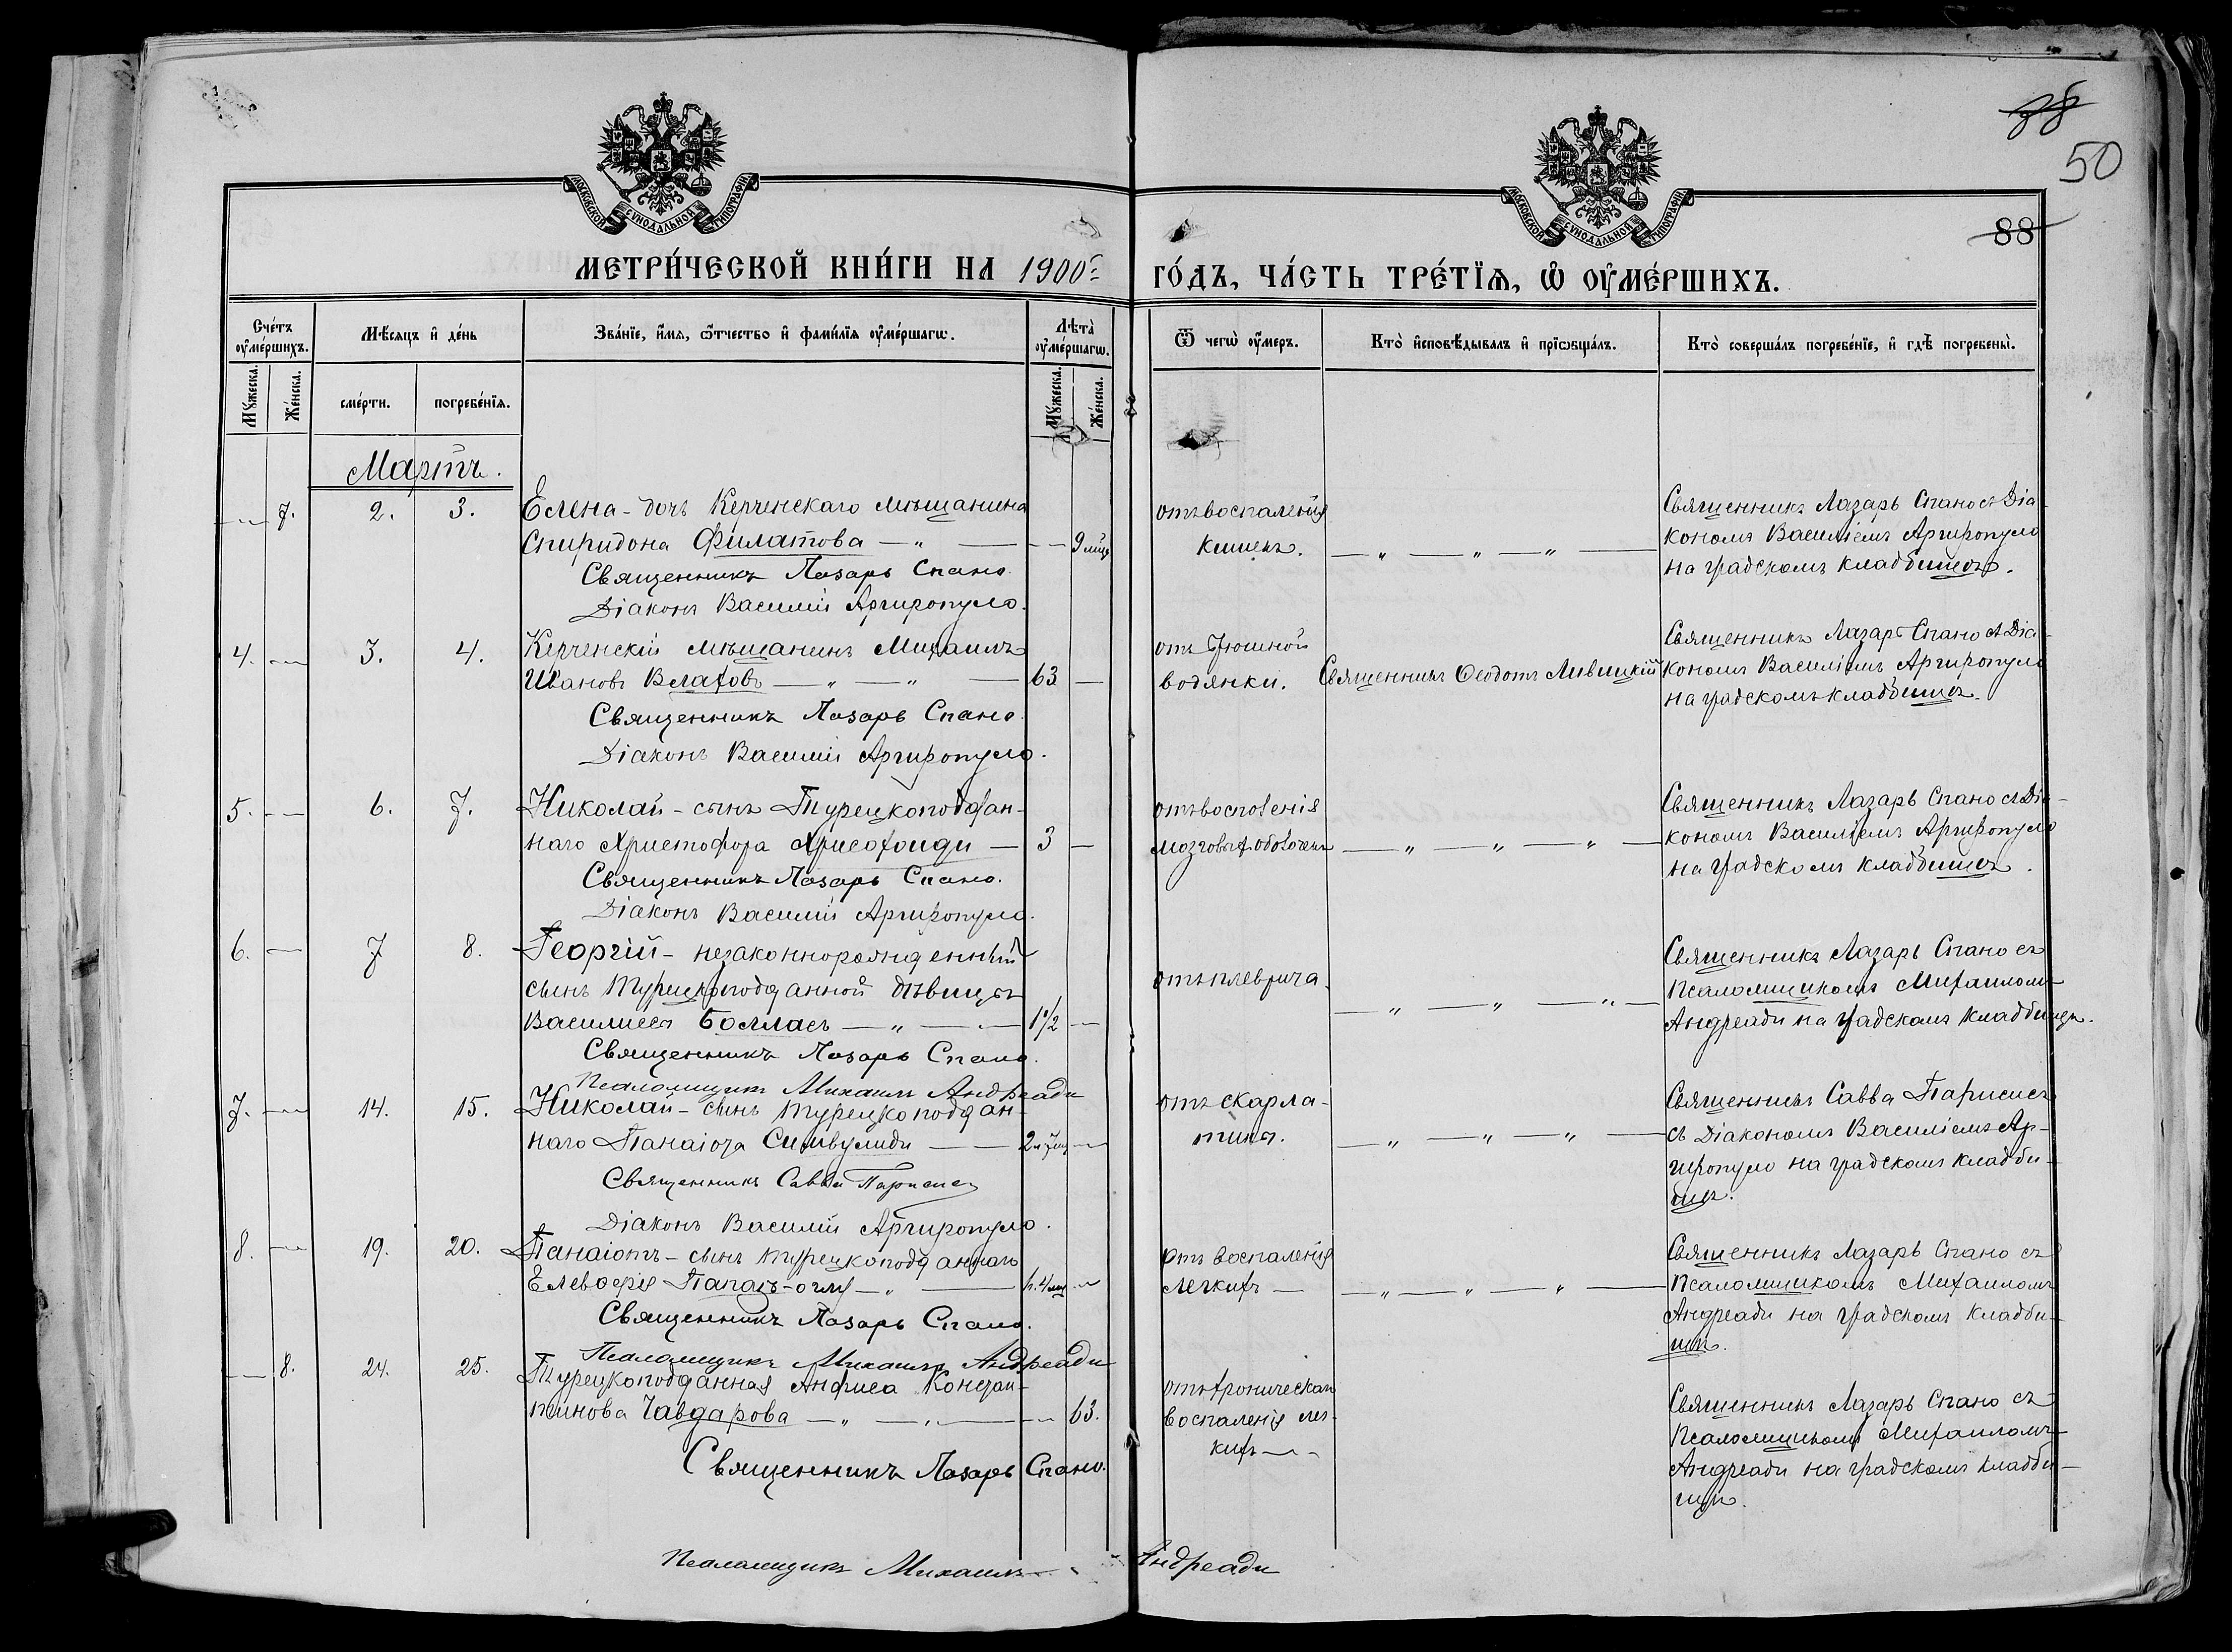 38
50
88
МОСКОВСКОЙ СѴНОДАЛЬНОЙ ТИПОГРАФІИ
МОСКОВСКОЙ СѴНОДАЛЬНОЙ ТИПОГРАФІИ
МЕТРИ́ЧЕСКОЙ КНИ́ГИ НА 1900 ГО́ДЪ, ЧА́СТЬ ТРЕ́ТІѦ, Ѡ҆ ОУ҆МЕ́РШИХЪ.
Сче́тъ оу҆ме́ршихъ.
Мѣ́сяцъ и҆ де́нь
Зва́нїе, и҆́мѧ, ѻ҆́тчество и҆ фами́лїѧ оу҆ме́ршагѡ.
Лѣта̀ оу҆ме́ршагѡ.
Ѿ чегѡ̀ оу҆́меръ.
Кто̀ и҆сповѣ́дывалъ и҆ прїѡбща́лъ.
Кто̀ соверша́лъ погребе́нїе, и҆ гдѣ̀ погребены̀.
Мꙋ́жеска. Же́нска. сме́рти. погребе́нїѧ. Мꙋ́жеска. Же́нска.
Мартъ.
7. 2. 3. Елена - дочь Керченскаго мѣщанина
Спиридона Филатова — „ — 9 мѣц
Священникъ Лазарь Спано.
Діаконъ Василій Аргиропуло.
отъ воспаленія
кишекъ. — „ — „ — „ —
Священникъ Лазарь Спано съ Діа-
кономъ Василіемъ Аргиропуло
на градскомъ кладбищѣ.
4. 3. 4. Керченскій мѣщанинъ Михаилъ
Ивановъ Влаховъ — „ — „ — 63 —
Священникъ Лазарь Спано.
Діаконъ Василій Аргиропуло.
отъ
водянки. Священникъ Ѳеодотъ Ливицкій
Священникъ Лазарь Спано съ Діа-
кономъ Василіемъ Аргиропуло
на градскомъ кладбищѣ.
5. 6. 7. Николай - сынъ Турецкоподдан-
наго Христофора Хрисохоиди — 3 —
Священникъ Лазарь Спано.
Діаконъ Василій Аргиропуло.
отъ воспаленія
мозговыхъ оболочекъ — „ — „ — „ —
Священникъ Лазарь Спано съ Діа-
кономъ Василіемъ Аргиропуло
на градскомъ кладбищѣ.
6. 7 8. Георгій - незаконнорожденный
сынъ Турецкоподданной дѣвицы
Василисы Боллась — „ — 1 1/2 —
Священникъ Лазарь Спано.
Псаломщикъ Михаилъ Андреади
отъ плеврита.
— „ — „ —
Священникъ Лазарь Спано съ
Псаломщикомъ Михаиломъ
Андреади на градскомъ кладбищѣ.
7. 14. 15. Николай - сынъ турецкоподдан-
наго Панаіота Симвулиди —
Священникъ Савва Парисисъ
Діаконъ Василій Аргиропуло.
отъ скарла-
тины. — „ — „ — „ —
Священникъ Савва Парисисъ
съ Діакономъ Василіемъ Ар-
гиропуло на градскомъ кладби-
щѣ.
8. 19. 20. Панаіотъ - сынъ турецкоподданнаго
Елевѳерія Папазъ-оглу — „ —
Священникъ Лазарь Спано.
Псаломщикъ Михаилъ Андреади
отъ воспаленія
легкихъ — — „ — „ — „ —
Священникъ Лазарь Спано съ
Псаломщикомъ Михаиломъ
Андреади на градскомъ кладби-
щѣ.
8. 24. 25. Турецкоподданная Анфиса Констан-
тинова Чавдарова — „ — 63.
Священникъ Лазарь Спано.
Псаломщикъ Михаилъ Андреади
отъ хроническаго
воспаленія лег-
кихъ —
Священникъ Лазарь Спано съ
Псаломщикомъ Михаиломъ
Андреади на градскомъ кладби-
щѣ.